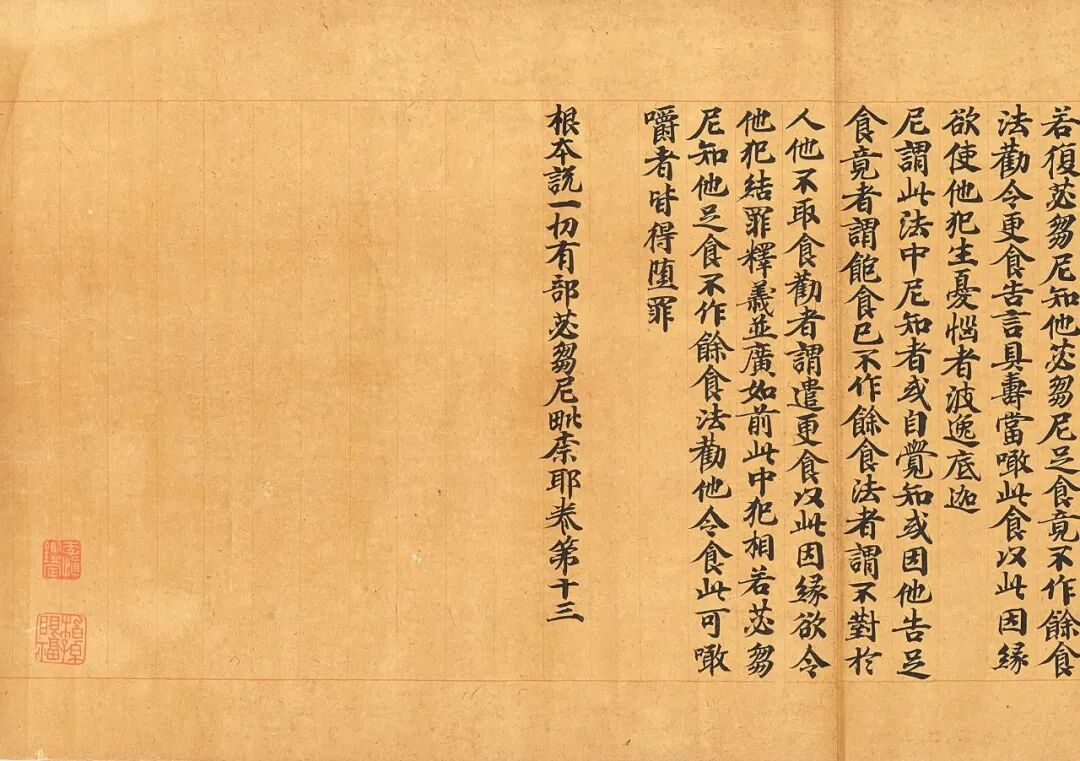 若復苾芻尼知他苾芻尼足食竟不作餘食
法勸令更食告言具壽當噉此食以此因緣
欲使他犯生憂惱者波逸底迦
尼謂此法中尼知者或自覺知或因他告足
食竟者謂飽食已不作餘食法者謂不對於
人他不取食勸者謂遣更食以此因緣欲令
他犯結罪釋義並廣如前此中犯相若苾芻
尼知他足食不作餘食法勸他令食此可噉
嚼者皆得墮罪
根本說一切有部苾芻尼毗柰耶卷第十三